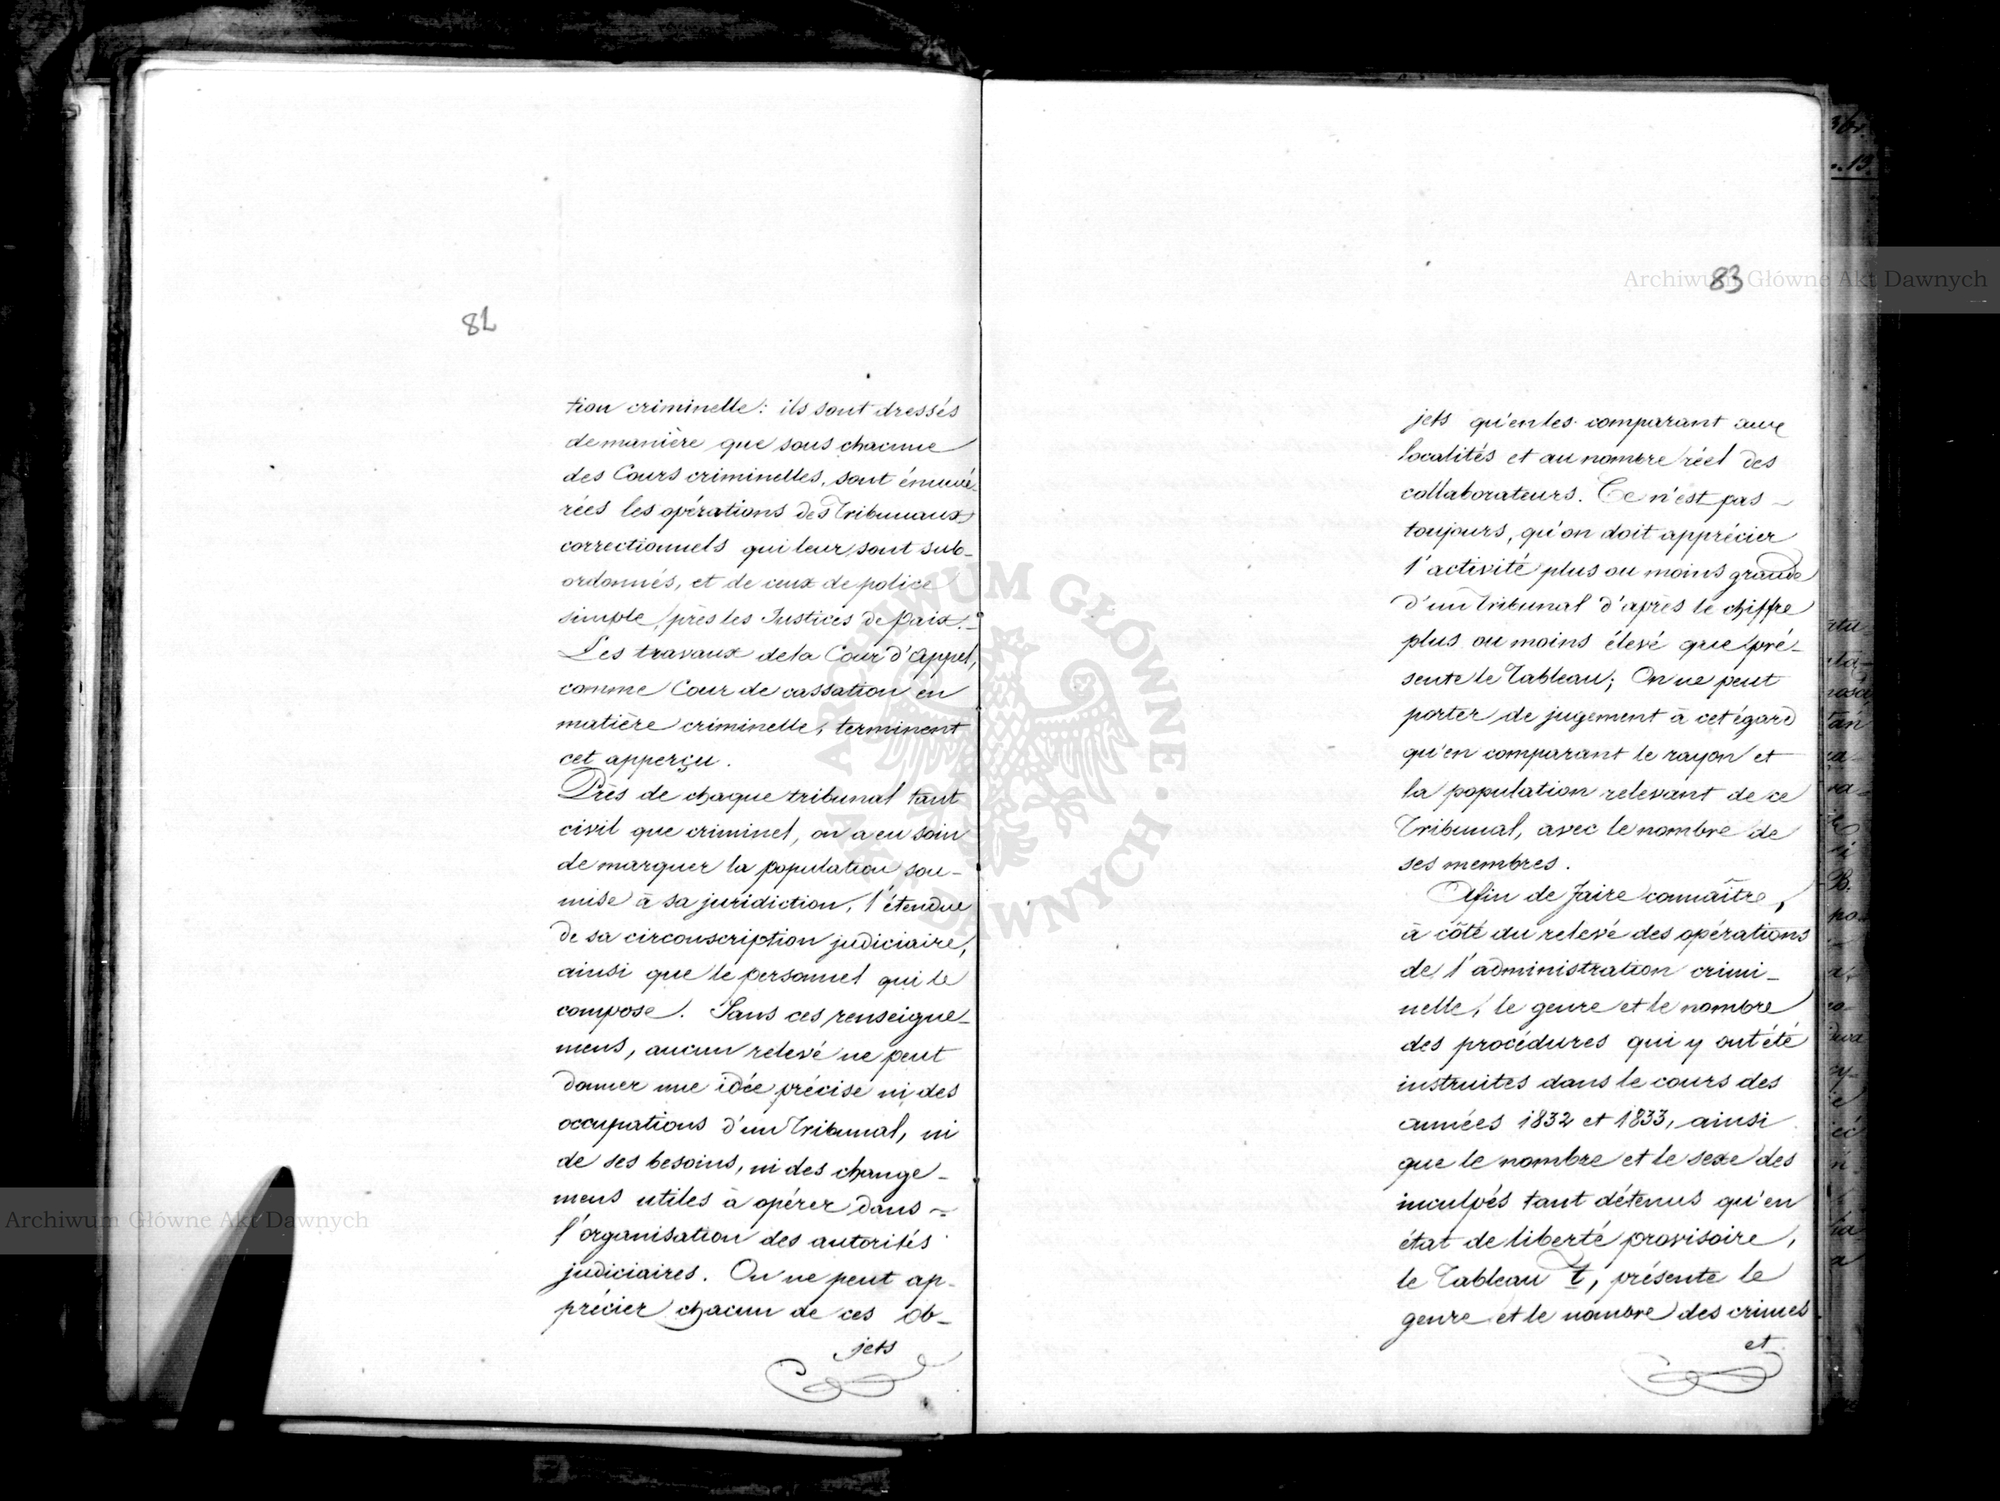 82
tion criminelle: ils sont dressés
de manière que sous chacune
des Cours criminelles, sont énumé-
rées les opérations des Tribunaux
correctionnels qui leur sont sub-
ordonnés, et de ceux de police
simple, près les Justices de Paix.-
Les travaux de la Cour d'Appel,
comme Cour de cassation en
matière criminelle, terminent
cet apperçu.
Près de chaque tribunal tant
civil que criminel, on a eu soin
de marquer la population sou-
mise à sa juridiction, l'étendue
de sa circonscription judiciaire,
ainsi que le personnel qui le
compose. Sans ces renseigne-
mens, aucun relevé ne peut
donner une idée précise ni des
occupations d'un Tribunal, ni
de ses besoins, ni des change-
mens utiles à opérer dans
l'organisation des autorités
judiciaires. On ne peut ap-
précier chacun de ces ob-
jets
83
jets qu'en les comparant aux
localités et au nombre réel des
collaborateurs. Ce n'est pas
toujours, qu'on doit apprécier
l'activité plus ou moins grande
d'un Tribunal d'après le chiffre
plus ou moins élevé que pré-
sente le Tableau; On ne peut
porter de jugement à cet égard
qu'en comparant le rayon et
la population relevant de ce
Tribunal, avec le nombre de
ses membres.
Afin de faire connaître,
à côté du relevé des opérations
de l'administration crimi-
nelle, le genre et le nombre
des procédures qui y ont été
instruites dans le cours des
années 1832 et 1833, ainsi
que le nombre et le sexe des
inculpés tant détenus qu'en
état de liberté provisoire,
le Tableau t, présente le
genre et le nombre des crimes
et
Archiwum Główne Akt Dawnych
Archiwum Główne Akt Dawnych
ARCHIWUM GŁÓWNE AKT DAWNYCH